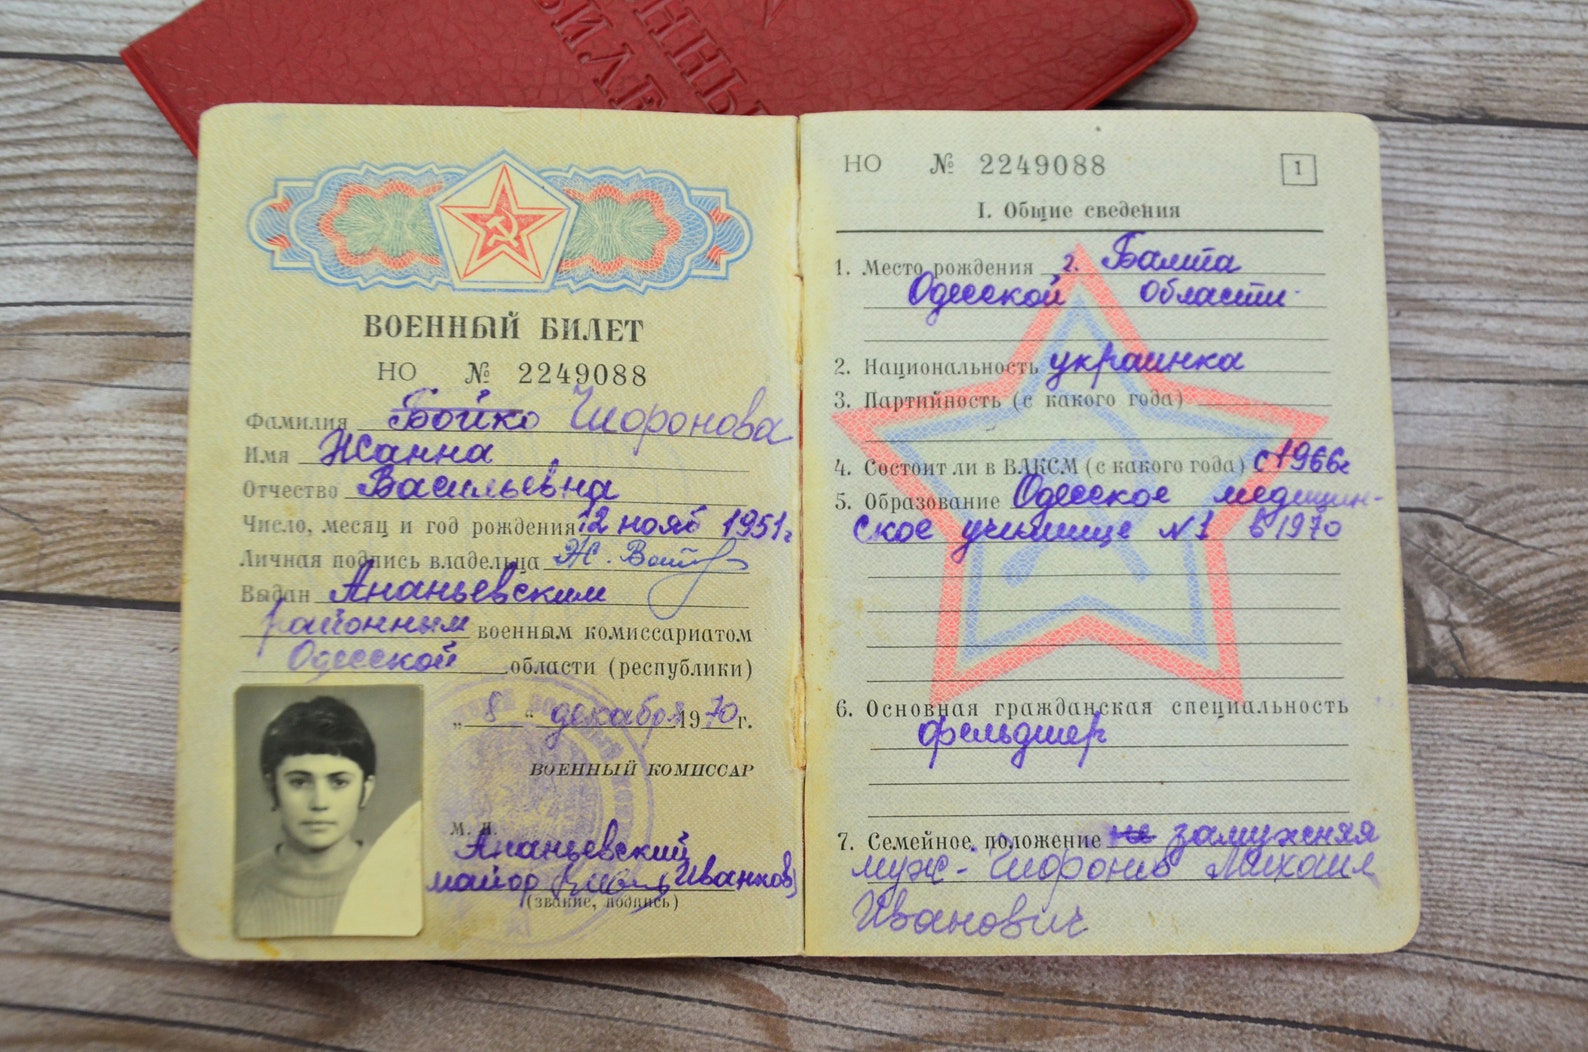 ВОЕННЫЙ БИЛЕТ
НО № 2249088
Фамилия Бойко Чифронова
Имя Жанна
Отчество Васильевна
Число, месяц и год рождения 12 нояб 1951г
Личная подпись владельца Ж.
Выдан Ананьевским
районным военным комиссариатом
Одесской области (республики)
„ 8 “ декабря 1970 г.
ВОЕННЫЙ КОМИССАР
М. П.
Ананьевский
майор Иванков
(звание, подпись)
НО № 2249088
1
I. Общие сведения
1. Место рождения г. Балта
Одесской области.
2. Национальность украинка
3. Партийность (с какого года)
4. Состоит ли в ВЛКСМ (с какого года) с 1966г
5. Образование Одесское медицин-
ское училище №1 в 1970
6. Основная гражданская специальность
фельдшер
7. Семейное положение не замужняя
муж - Чифронов Михаил
Иванович